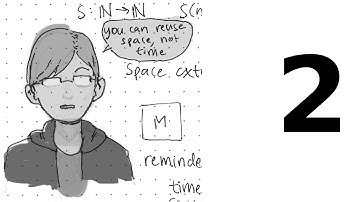 S: ℕ→ℕ S(n
you can reuse
space, not
time
Space
M
reminde
time
2